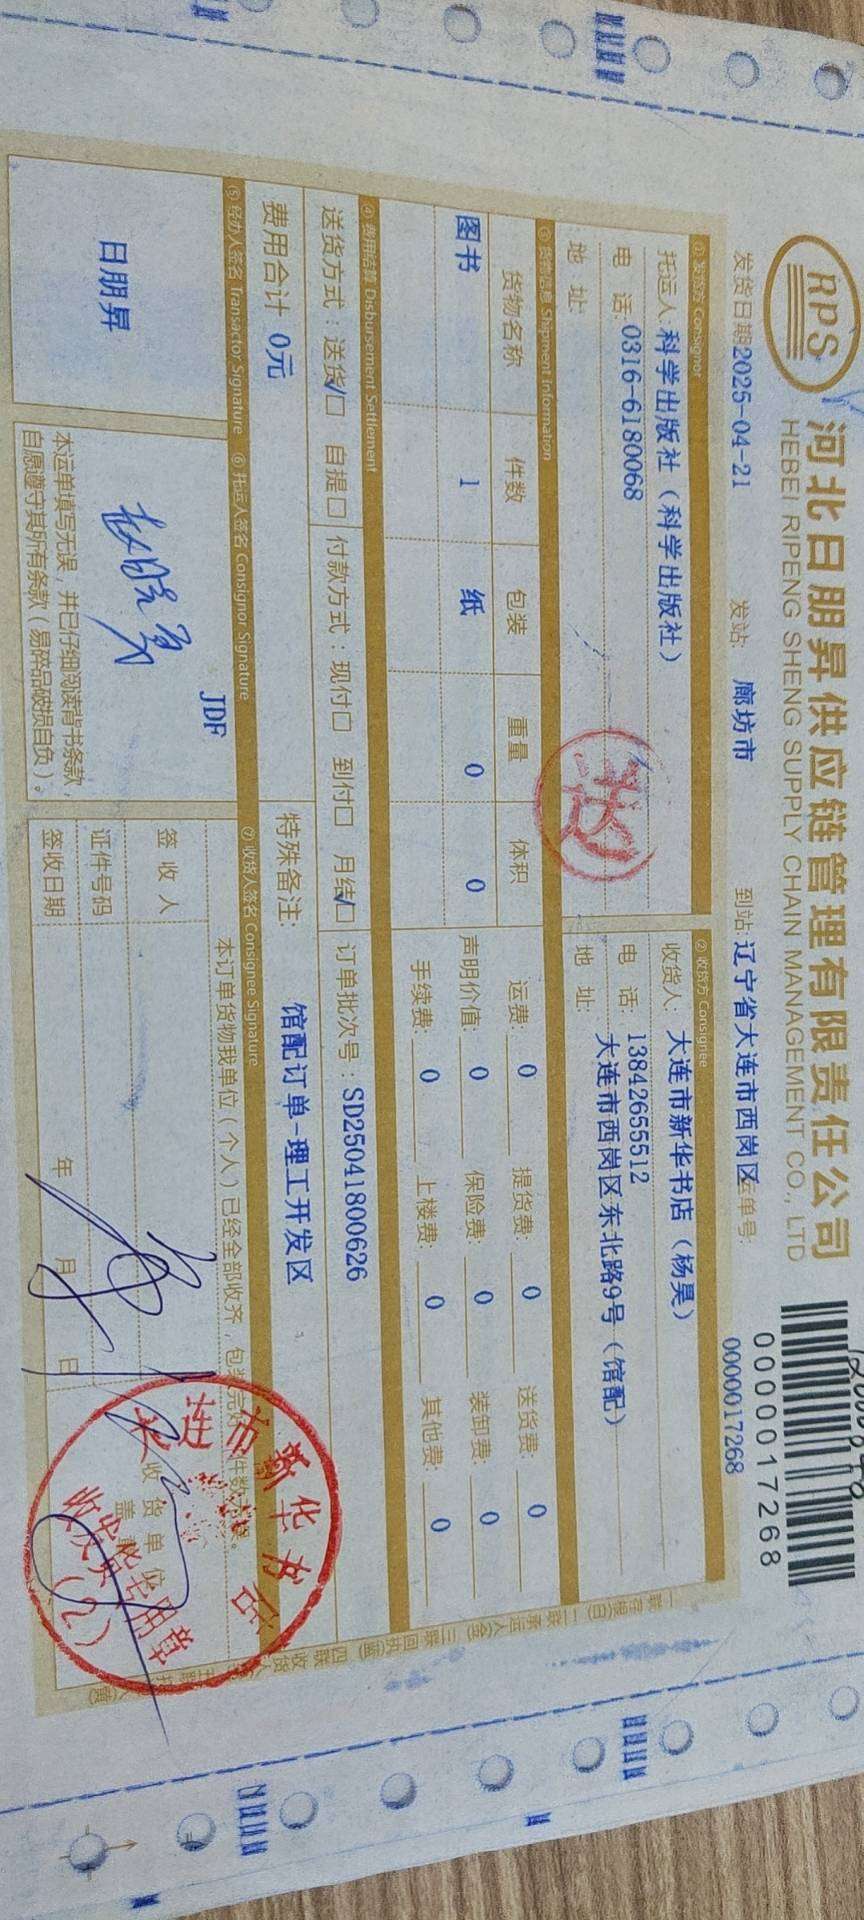 RPS
河北日朋昇供应链管理有限责任公司
HEBEI RIPENG SHENG SUPPLY CHAIN MANAGEMENT CO., LTD
0000017268
发货日期2025-04-21 发站: 廊坊市 到站: 辽宁省大连市西岗区 运单号: 0000017268
① 发货方 Consignor
托运人: 科学出版社（科学出版社）
电 话: 0316-6180068
地 址:
② 收货方 Consignee
收货人: 大连市新华书店（杨昊）
电 话: 13842655512
地 址: 大连市西岗区东北路9号（馆配）
③ 货物信息 Shipment Information
货物名称 件数 包装 重量 体积
图书 1 纸 0 0
运费: 0 提货费: 0 送货费: 0
声明价值: 0 保险费: 0 装卸费: 0
手续费: 0 上楼费: 0 其他费: 0
④ 费用结算 Disbursement Settlement
送货方式: 送货√□ 自提□ 付款方式: 现付□ 到付□ 月结√□ 订单批次号: SD25041800626
费用合计 0元
特殊备注: 馆配订单-理工开发区
⑤ 经办人签名 Transactor Signature
日朋昇
⑥ 托运人签名 Consignor Signature
JDF
本运单填写无误，并已仔细阅读背书条款，
自愿遵守其所有条款（易碎品破损自负）。
⑦ 收货人签名 Consignee Signature
本订单货物我单位（个人）已经全部收齐，包装完好
签 收 人
证件号码
签收日期 年 月 日
收 货 单 位
大连市新华书店
(2)